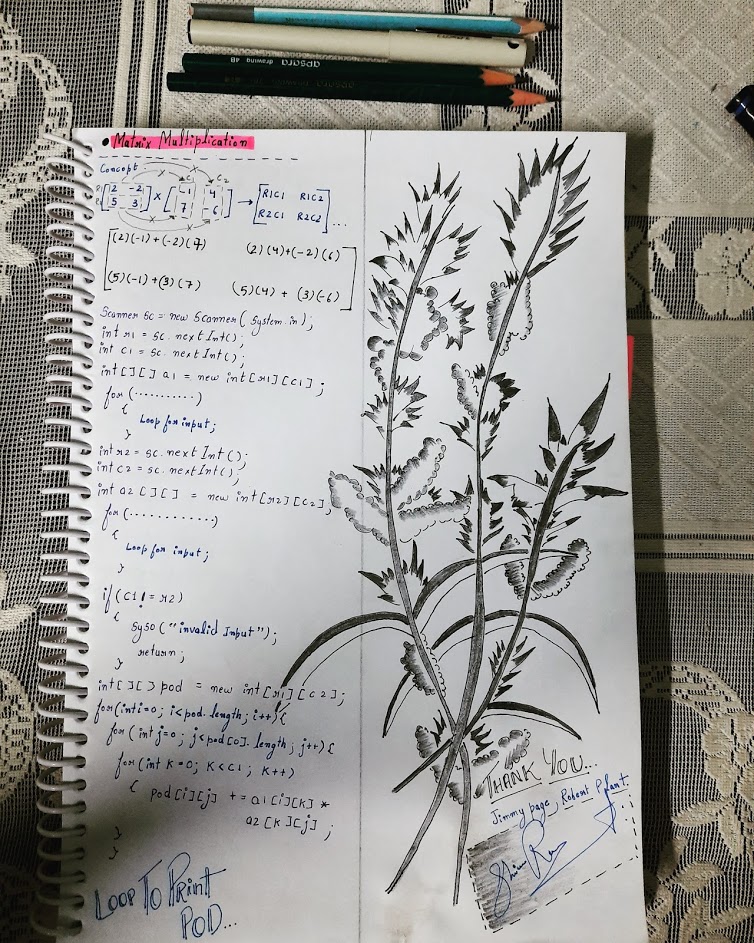 apsara drawing 4B
• Matrix Multiplication
Concept
C1 C2
R1 [2 -2] x [-1 4] → [R1C1 R1C2]
[5 3] [7 -6] [R2C1 R2C2] ...
[(2)(-1)+(-2)(7) (2)(4)+(-2)(6)]
[(5)(-1)+(3)(7) (5)(4) + (3)(-6)]
Scanner sc = new Scanner( System.in);
int r1 = sc.nextInt();
int c1 = sc.nextInt();
int[][] a1 = new int[r1][c1];
for (..........)
{
Loop for input;
}
int r2 = sc.nextInt();
int c2 = sc.nextInt();
int a2 [][] = new int[r2][c2];
for (............)
{
Loop for input;
}
if (c1 != r2)
{
syso ("invalid Input");
return;
}
int[][] pod = new int[r1][c2];
for(int i=0; i<pod.length; i++){
for (int j=0; j<pod[0].length; j++){
for(int k=0; k<c1; k++)
{ pod[i][j] += a1[i][k] *
a2[k][j];
}
}
LOOP TO PRINT
POD...
THANK YOU...
Jimmy page, Robert Plant.